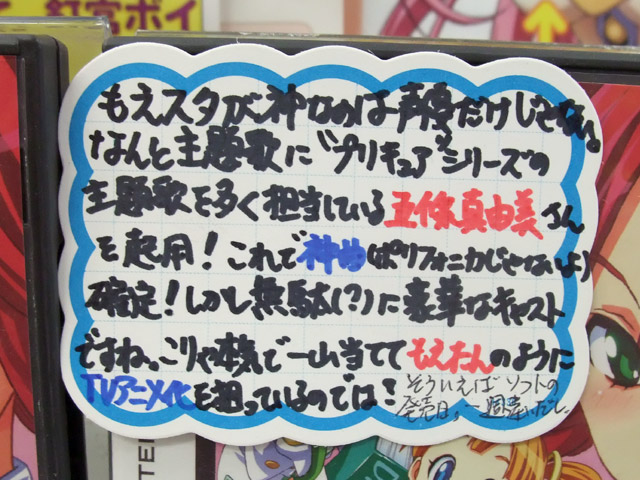 て、釘宮ボイ
もえスタが神なのは声優だけじゃない。
なんと主題歌に"プリキュア"シリーズの
主題歌を多く担当している五條真由美さん
を起用!これで神曲(ポリフォニカじゃないよ)
確定!しかし無駄(?)に豪華なキャスト
ですね。こりゃ本気で一山当ててもえたんのように
TVアニメ化を狙っているのでは?
そういえばソフトの
発売日、一週違いだし。